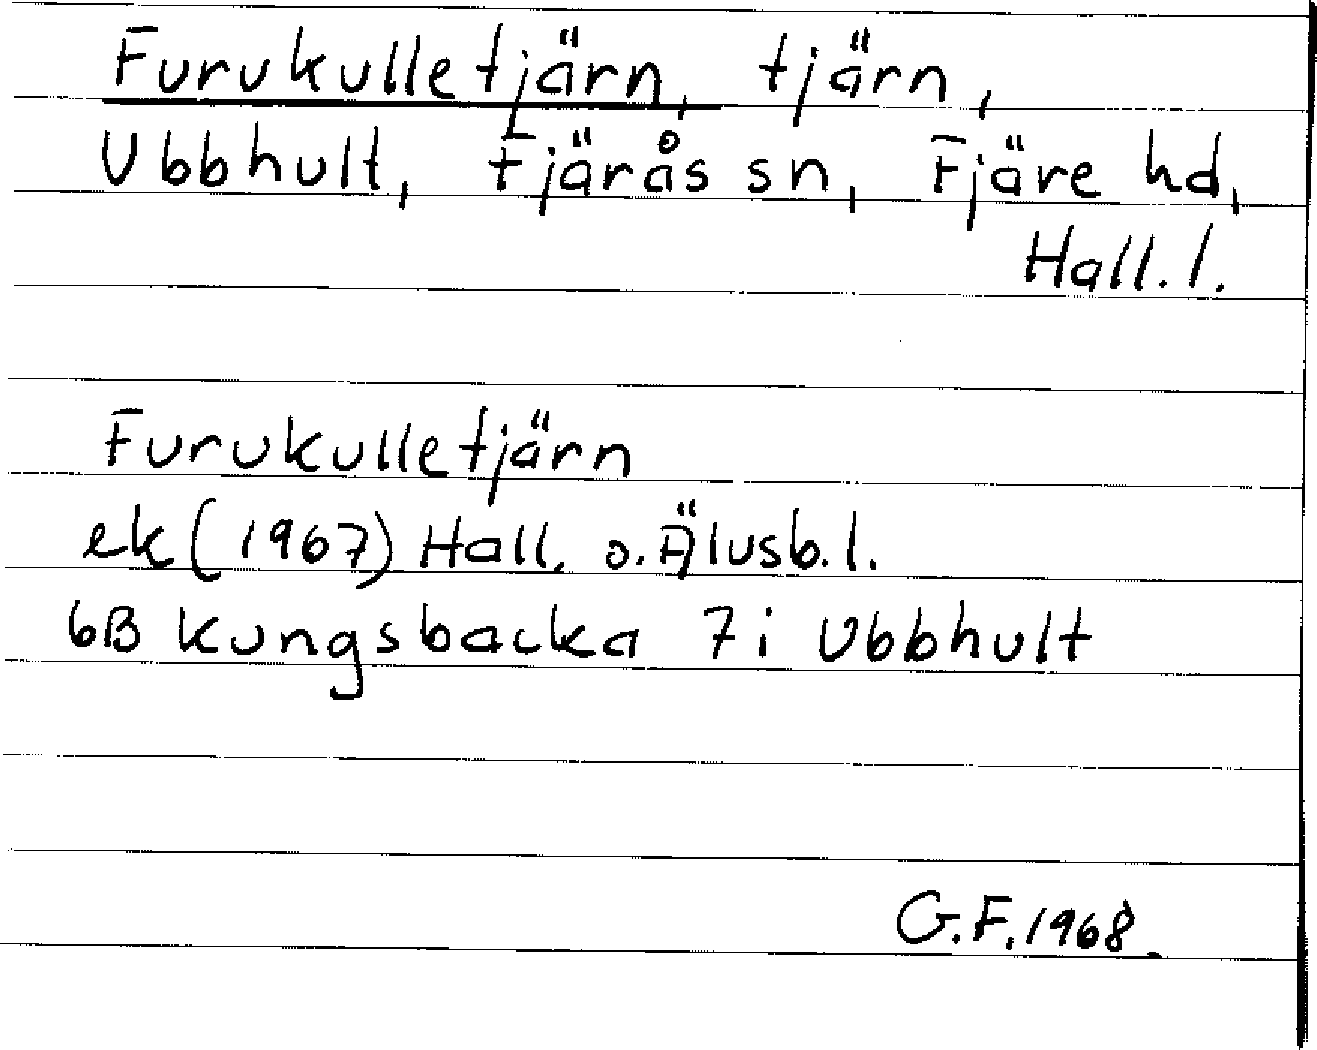 Furukulletjärn, tjärn,
Ubbhult, Fjärås sn, Fjäre hd,
Hall. l.
Furukulletjärn
ek (1967) Hall. o. Älvsb. l.
6B Kungsbacka 7i Ubbhult
G.F. 1968.